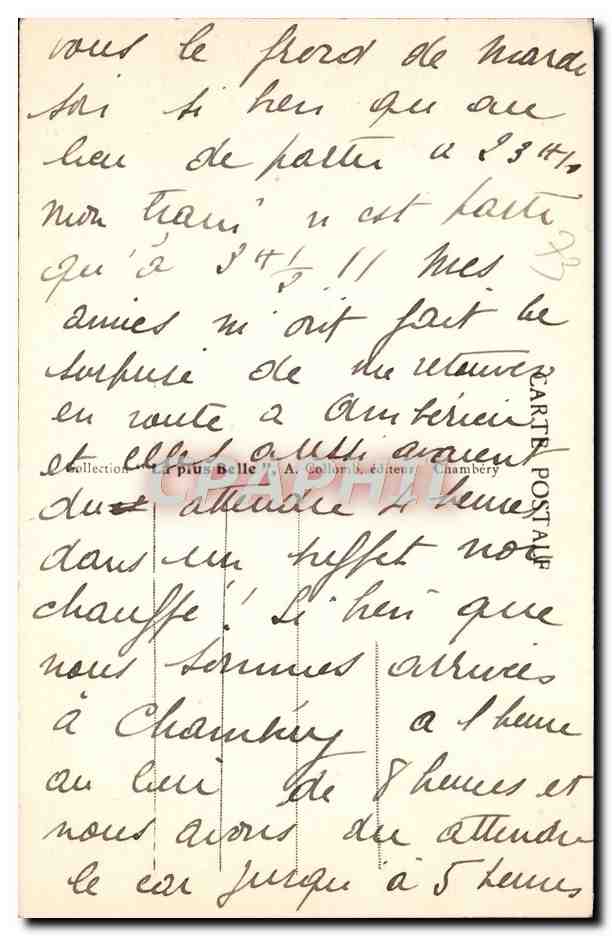 vous le froid de Mardi
soir si bien qu au
lieu de partir a 23 H 1/2
mon train n est parti
qu'à 3 H 1/2 !! Mes
amies m'ont fait la
surprise de me retrouver
en route a Ambérieu
et elles aussi avaient
Collection "La plus Belle", A. Collomb, éditeur Chambéry
CARTE POSTALE
73
du attendre 4 heures
dans un buffet non
chauffé! Si bien que
nous sommes arrivées
à Chambéry a 1 heure
au lieu de 8 heures et
nous avons du attendre
le car jusqu'à 5 heures
CPAPHIL